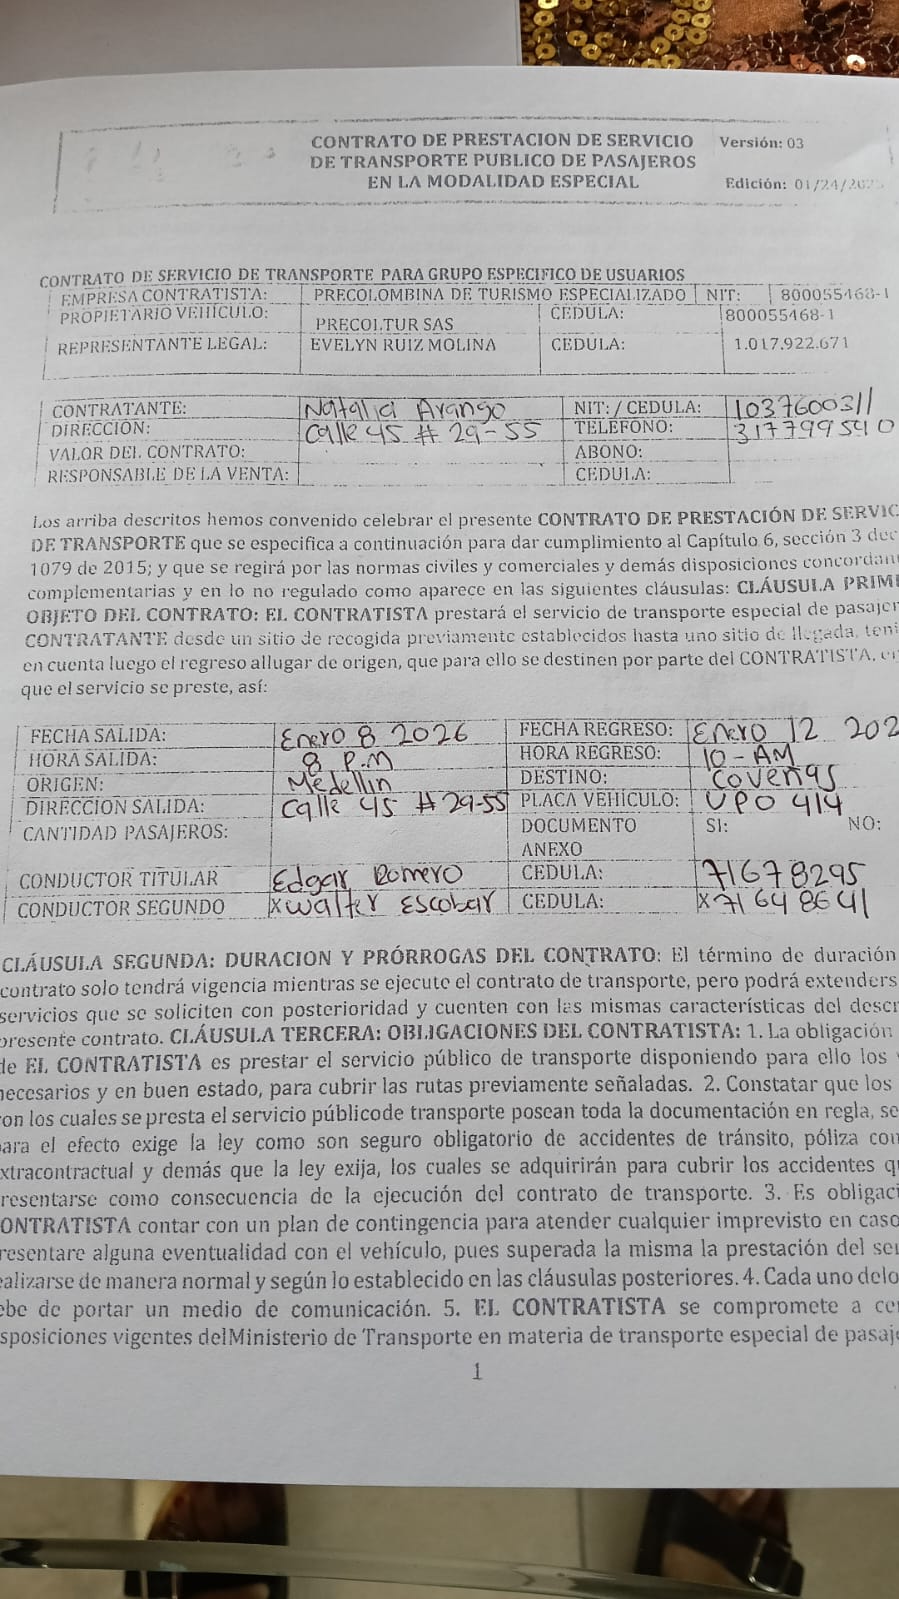 CONTRATO DE PRESTACION DE SERVICIO Versión: 03
DE TRANSPORTE PUBLICO DE PASAJEROS
EN LA MODALIDAD ESPECIAL Edición: 01/24/202
CONTRATO DE SERVICIO DE TRANSPORTE PARA GRUPO ESPECIFICO DE USUARIOS
EMPRESA CONTRATISTA: PRECOLOMBINA DE TURISMO ESPECIALIZADO NIT: 800055468-1
PROPIETARIO VEHICULO: PRECOLTUR SAS CEDULA: 800055468-1
REPRESENTANTE LEGAL: EVELYN RUIZ MOLINA CEDULA: 1.017.922.671
CONTRATANTE: Natalia Arango NIT: / CEDULA: 1037600311
DIRECCIÓN: Calle 45 # 29-55 TELEFONO: 317799540
VALOR DEL CONTRATO: ABONO:
RESPONSABLE DE LA VENTA: CEDULA:
Los arriba descritos hemos convenido celebrar el presente CONTRATO DE PRESTACIÓN DE SERVIC
DE TRANSPORTE que se especifica a continuación para dar cumplimiento al Capítulo 6, sección 3 dec
1079 de 2015; y que se regirá por las normas civiles y comerciales y demás disposiciones concordan
complementarias y en lo no regulado como aparece en las siguientes cláusulas: CLÁUSULA PRIM
OBJETO DEL CONTRATO: EL CONTRATISTA prestará el servicio de transporte especial de pasajer
CONTRATANTE desde un sitio de recogida previamente establecidos hasta uno sitio de llegada, teni
en cuenta luego el regreso allugar de origen, que para ello se destinen por parte del CONTRATISTA, e
que el servicio se preste, así:
FECHA SALIDA: Enero 8 2026 FECHA REGRESO: Enero 12 202
HORA SALIDA: 8 P.M HORA REGRESO: 10-AM
ORIGEN: Medellin DESTINO: Coveñas
DIRECCION SALIDA: Calle 45 # 29-55 PLACA VEHÍCULO: UPO 414
CANTIDAD PASAJEROS: DOCUMENTO ANEXO SI: NO:
CONDUCTOR TITULAR Edgar Romero CEDULA: 71678295
CONDUCTOR SEGUNDO x Walter Escobar CEDULA: x 71648641
CLÁUSULA SEGUNDA: DURACION Y PRÓRROGAS DEL CONTRATO: El término de duración
contrato solo tendrá vigencia mientras se ejecute el contrato de transporte, pero podrá extenders
servicios que se soliciten con posterioridad y cuenten con las mismas características del descr
presente contrato. CLÁUSULA TERCERA: OBLIGACIONES DEL CONTRATISTA: 1. La obligación
de EL CONTRATISTA es prestar el servicio público de transporte disponiendo para ello los
necesarios y en buen estado, para cubrir las rutas previamente señaladas. 2. Constatar que los
on los cuales se presta el servicio públicode transporte posean toda la documentación en regla, se
para el efecto exige la ley como son seguro obligatorio de accidentes de tránsito, póliza con
xtracontractual y demás que la ley exija, los cuales se adquirirán para cubrir los accidentes q
resentarse como consecuencia de la ejecución del contrato de transporte. 3. Es obligaci
ONTRATISTA contar con un plan de contingencia para atender cualquier imprevisto en caso
resentare alguna eventualidad con el vehículo, pues superada la misma la prestación del ser
ealizarse de manera normal y según lo establecido en las cláusulas posteriores. 4. Cada uno delo
ebe de portar un medio de comunicación. 5. EL CONTRATISTA se compromete a ce
sposiciones vigentes delMinisterio de Transporte en materia de transporte especial de pasaj
1